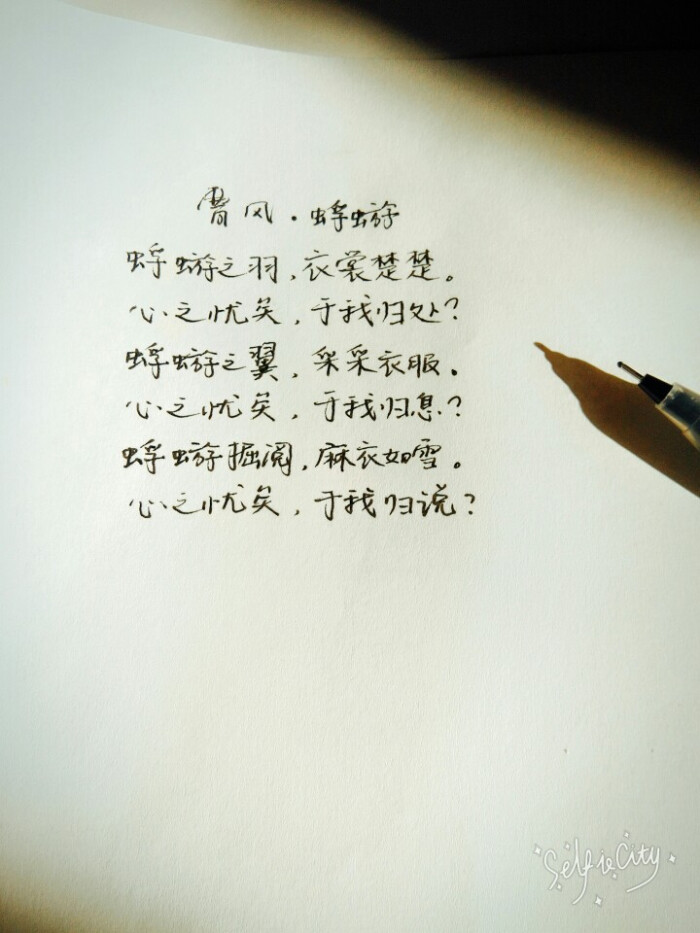 曹风·蜉蝣
蜉蝣之羽,衣裳楚楚。
心之忧矣,于我归处?
蜉蝣之翼,采采衣服。
心之忧矣,于我归息?
蜉蝣掘阅,麻衣如雪。
心之忧矣,于我归说?
SelfieCity